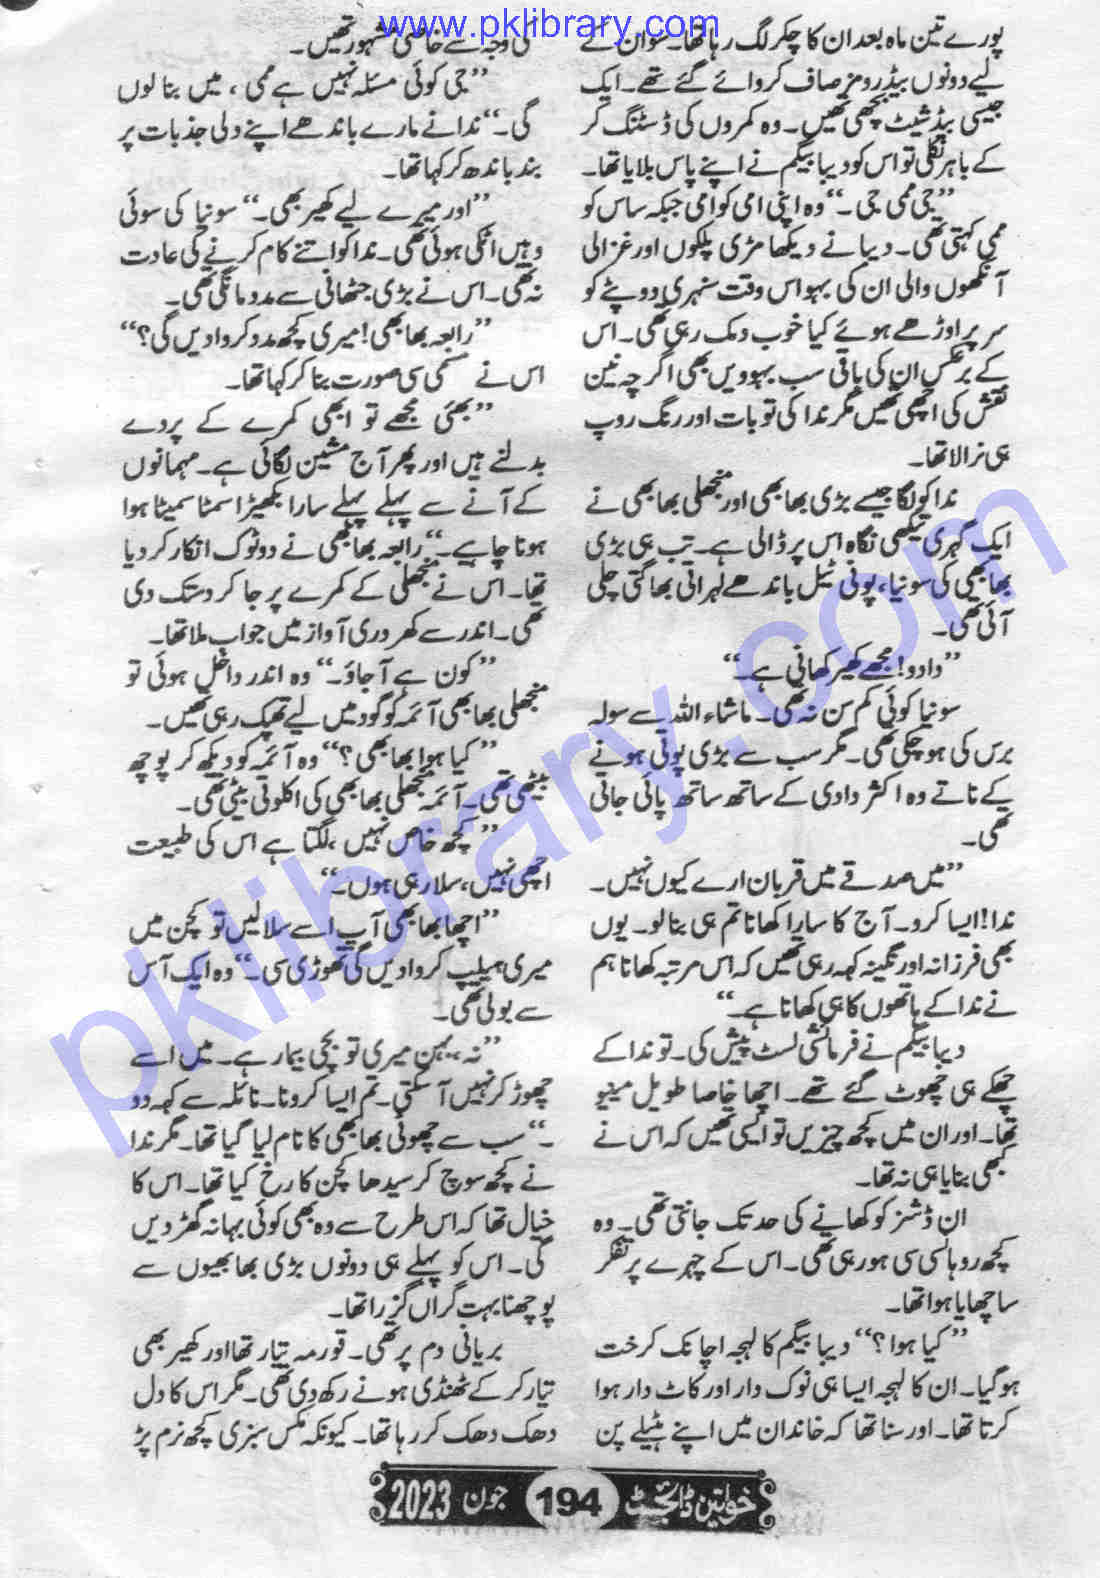 www.pklibrary.com
پورے تین ماہ بعد ان کا چکر لگ رہا تھا۔ سو ان کے
لیے دونوں بیڈ رومز صاف کروائے گئے تھے۔ ایک
جیسی بیڈ شیٹ بچھی تھیں۔ وہ کمروں کی ڈسٹنگ کر
کے باہر نکلی تو اس کو دیبا بیگم نے اپنے پاس بلایا تھا۔
”جی ممی جی۔“ وہ اپنی امی کو امی جبکہ ساس کو
ممی کہتی تھی۔ دیبا نے دیکھا مڑی پلکوں اور غزالی
آنکھوں والی ان کی بہو اس وقت سنہری دوپٹے کو
سر پر اوڑھے ہوئے کیا خوب دمک رہی تھی۔ اس
کے برعکس ان کی باقی سب بہوویں بھی اگرچہ نین
نقش کی اچھی تھیں مگر ندا کی تو بات اور رنگ روپ
ہی نرالا تھا۔
ندا کو لگا جیسے بڑی بھابھی اور منجھلی بھابھی نے
ایک گہری تیکھی نگاہ اس پر ڈالی ہے۔ تب ہی بڑی
بھابھی کی سونیا، پونی ٹیل باندھے لہراتی بھاگتی چلی
آئی تھی۔
”دادو! مجھے کھیر کھانی ہے۔“
سونیا کوئی کم سن نہ تھی۔ ماشاء اللہ سے سولہ
برس کی ہو چکی تھی۔ مگر سب سے بڑی پوتی ہونے
کے ناتے وہ اکثر دادی کے ساتھ ساتھ پائی جاتی
تھی۔
”میں صدقے میں قربان ارے کیوں نہیں۔
ندا! ایسا کرو۔ آج کا سارا کھانا تم ہی بنا لو۔ یوں
بھی فرزانہ اور نگینہ کہہ رہی تھیں کہ اس مرتبہ کھانا ہم
نے ندا کے ہاتھوں کا ہی کھانا ہے۔“
دیبا بیگم نے فرمائشی لسٹ پیش کی۔ تو ندا کے
چھکے ہی چھوٹ گئے تھے۔ اچھا خاصا طویل مینیو
تھا۔ اور ان میں کچھ چیزیں تو ایسی تھیں کہ اس نے
کبھی بنایا ہی نہ تھا۔
ان ڈشز کو کھانے کی حد تک جانتی تھی۔ وہ
کچھ روہانسی سی ہو رہی تھی۔ اس کے چہرے پر تفکر
سا چھایا ہوا تھا۔
”کیا ہوا؟“ دیبا بیگم کا لہجہ اچانک کرخت
ہو گیا۔ ان کا لہجہ ایسا ہی نوک دار اور کاٹ دار ہوا
کرتا تھا۔ اور سنا تھا کہ خاندان میں اپنے ہٹیلے پن
کی وجہ سے خاصی مشہور تھیں۔
”جی کوئی مسئلہ نہیں ہے ممی، میں بنا لوں
گی۔“ ندا نے مارے باندھے اپنے دلی جذبات پر
بند باندھ کر کہا تھا۔
”اور میرے لیے کھیر بھی۔“ سونیا کی سوئی
وہیں اٹکی ہوئی تھی۔ ندا کو اتنے کام کرنے کی عادت
نہ تھی۔ اس نے بڑی جٹھانی سے مدد مانگی تھی۔
”رابعہ بھابھی! میری کچھ مدد کروا دیں گی؟“
اس نے مسکی سی صورت بنا کر کہا تھا۔
”بھئی مجھے تو ابھی کمرے کے پردے
بدلنے ہیں اور پھر آج مشین لگائی ہے۔ مہمانوں
کے آنے سے پہلے پہلے سارا بکھیڑا سمٹا سمیٹا ہوا
ہونا چاہیے۔“ رابعہ بھابھی نے دو ٹوک انکار کر دیا
تھا۔ اس نے منجھلی کے کمرے پر جا کر دستک دی
تھی۔ اندر سے کھردری آواز میں جواب ملا تھا۔
”کون ہے آ جاؤ۔“ وہ اندر داخل ہوئی تو
منجھلی بھابھی آئمہ کو گود میں لیے تھپک رہی تھیں۔
”کیا ہوا بھابھی؟“ وہ آئمہ کو دیکھ کر پوچھ
بیٹھی تھی۔ آئمہ منجھلی بھابھی کی اکلوتی بیٹی تھی۔
”کچھ خاص نہیں، لگتا ہے اس کی طبیعت
اچھی نہیں، سلا رہی ہوں۔“
”اچھا بھابھی آپ اسے سلا لیں تو کچن میں
میری ہیلپ کروا دیں گی تھوڑی سی۔“ وہ ایک آس
سے بولی تھی۔
”نہ بہن میری تو بچی بیمار ہے۔ میں اسے
چھوڑ کر نہیں آ سکتی۔ تم ایسا کرو نا۔ نائلہ سے کہہ دو
۔“ سب سے چھوٹی بھابھی کا نام لیا گیا تھا۔ مگر ندا
نے کچھ سوچ کر سیدھا کچن کا رخ کیا تھا۔ اس کا
خیال تھا کہ اس طرح سے وہ بھی کوئی بہانہ گھڑ دیں
گی۔ اس کو پہلے ہی دونوں بڑی بھابھیوں سے
پوچھنا بہت گراں گزرا تھا۔
بریانی دم پر تھی۔ قورمہ تیار تھا اور کھیر بھی
تیار کر کے ٹھنڈی ہونے رکھ دی تھی۔ مگر اس کا دل
دھک دھک کر رہا تھا۔ کیونکہ مکس سبزی کچھ نرم پڑ
خواتین ڈائجسٹ 194 جون 2023
pklibrary.com